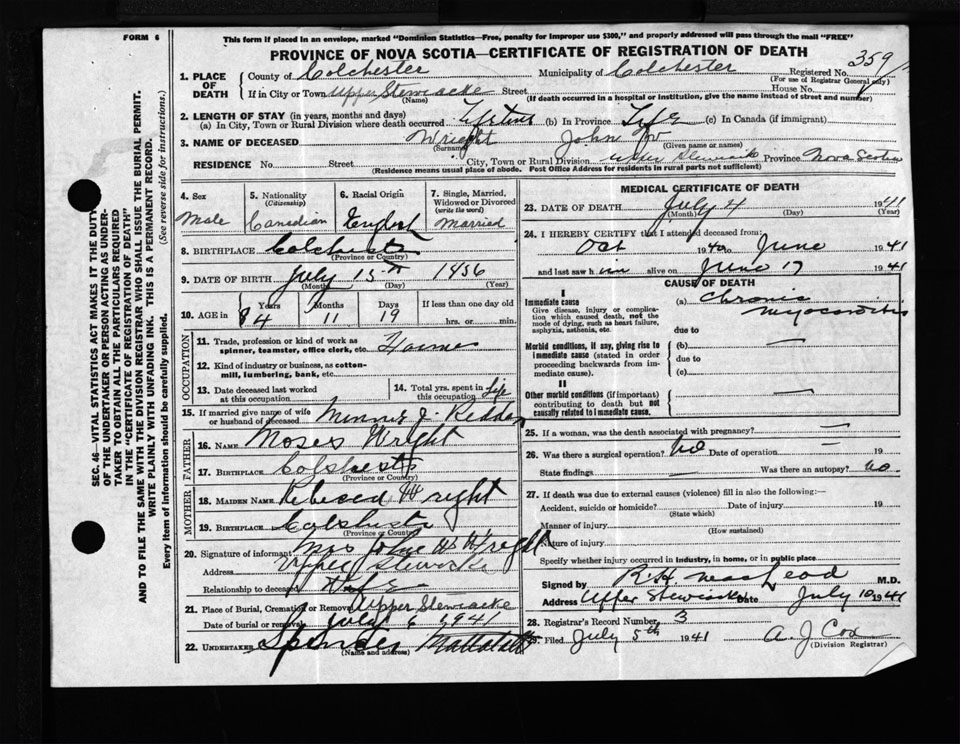 FORM 6
This form if placed in an envelope, marked "Dominion Statistics—Free, penalty for improper use $300," and properly addressed will pass through the mail "FREE"
PROVINCE OF NOVA SCOTIA—CERTIFICATE OF REGISTRATION OF DEATH
SEC. 46—VITAL STATISTICS ACT MAKES IT THE DUTY
OF THE UNDERTAKER OR PERSON ACTING AS UNDER-
TAKER TO OBTAIN ALL THE PARTICULARS REQUIRED
IN THE "CERTIFICATE OF REGISTRATION OF DEATH"
AND TO FILE THE SAME WITH THE DIVISION REGISTRAR WHO SHALL ISSUE THE BURIAL PERMIT.
WRITE PLAINLY WITH UNFADING INK. THIS IS A PERMANENT RECORD.
Every item of information should be carefully supplied. (See reverse side for instructions.)
1. PLACE OF DEATH
County of Colchester Municipality of Colchester Registered No. 359
(For use of Registrar General only)
If in City or Town Upper Stewiacke Street House No.
(Name) (If death occurred in a hospital or institution, give the name instead of street and number)
2. LENGTH OF STAY (in years, months and days)
(a) In City, Town or Rural Division where death occurred Lifetime (b) In Province Life (c) In Canada (if immigrant)
3. NAME OF DECEASED Wright John W
(Surname) (Given name or names)
RESIDENCE No. Street City, Town or Rural Division Upper Stewiacke Province Nova Scotia
(Residence means usual place of abode. Post Office Address for residents in rural parts not sufficient)
4. Sex
Male
5. Nationality
(Citizenship)
Canadian
6. Racial Origin
English
7. Single, Married,
Widowed or Divorced
(write the word)
Married
8. BIRTHPLACE Colchester
(Province or Country)
9. DATE OF BIRTH July 15th 1856
(Month) (Day) (Year)
10. AGE in
Years Months Days If less than one day old
84 11 19 hrs. or min.
OCCUPATION
11. Trade, profession or kind of work as
spinner, teamster, office clerk, etc. Farmer
12. Kind of industry or business, as cotton-
mill, lumbering, bank, etc.
13. Date deceased last worked
at this occupation
14. Total yrs. spent in
this occupation Life
15. If married give name of wife
or husband of deceased Minnie J.
FATHER
16. NAME Moses Wright
17. BIRTHPLACE Colchester
(Province or Country)
MOTHER
18. MAIDEN NAME Rebecca Wright
19. BIRTHPLACE Colchester
(Province or Country)
20. Signature of informant Mrs John W. Wright
Address Upper Stewiacke
Relationship to deceased Wife
21. Place of Burial, Cremation or Removal Upper Stewiacke
Date of burial or removal July 6 1941
22. UNDERTAKER Spencer Mattatall
(Name and address)
MEDICAL CERTIFICATE OF DEATH
23. DATE OF DEATH July 4 1941
(Month) (Day) (Year)
24. I HEREBY CERTIFY that I attended deceased from:
Oct 1940 to June 1941
and last saw him alive on June 17 1941
CAUSE OF DEATH
I
Immediate cause
Give disease, injury or complica-
tion which caused death, not the
mode of dying, such as heart failure,
asphyxia, asthenia, etc.
(a) Chronic
Myocarditis
due to
Morbid conditions, if any, giving rise to
immediate cause (stated in order
proceeding backwards from im-
mediate cause).
(b) —
due to
(c)
II
Other morbid conditions (if important)
contributing to death but not
causally related to immediate cause.
—
25. If a woman, was the death associated with pregnancy? —
26. Was there a surgical operation? No Date of operation 19
State findings — Was there an autopsy? No
27. If death was due to external causes (violence) fill in also the following:—
Accident, suicide or homicide? Date of injury 19
(State which)
Manner of injury
(How sustained)
Nature of injury
Specify whether injury occurred in industry, in home, or in public place
Signed by R.H. MacLeod M.D.
Address Upper Stewiacke Date July 10 1941
28. Registrar's Record Number 3
29. Filed July 5th 1941 A. J. Cox
(Division Registrar)